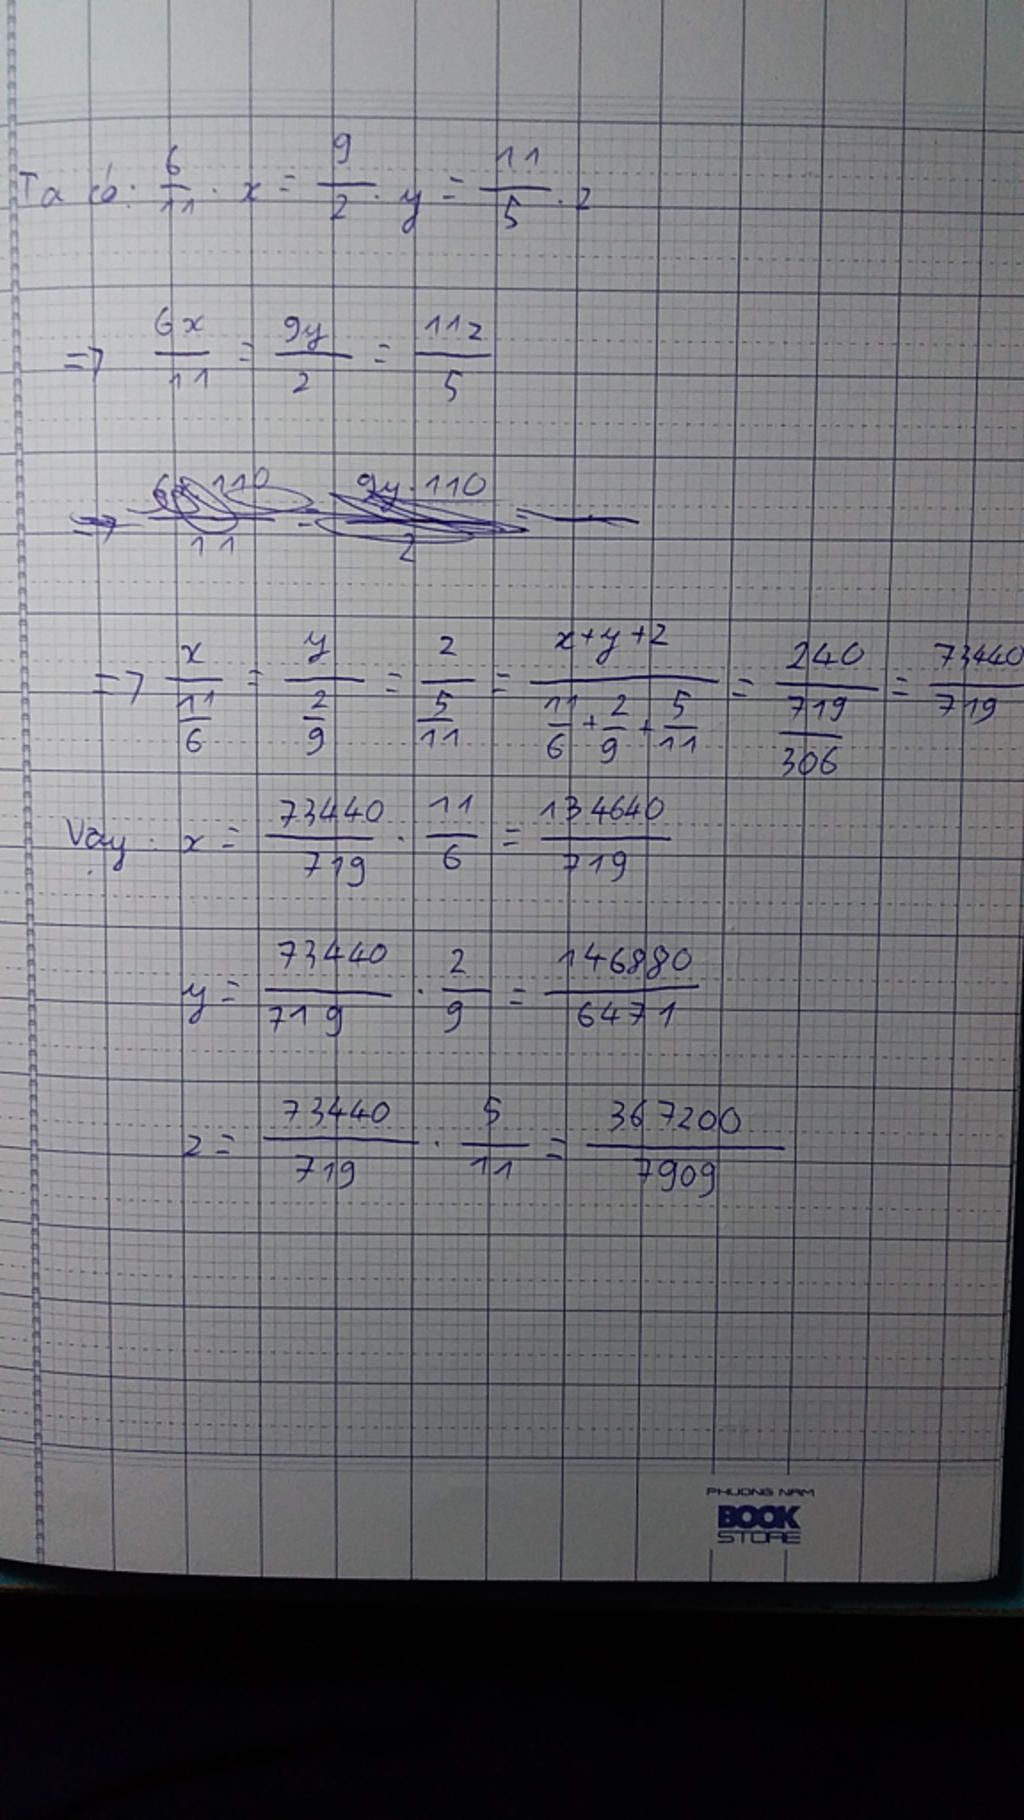 Ta có: 6/11 . x = 9/2 . y = 11/5 . z
=> 6x/11 = 9y/2 = 11z/5
=> x/(11/6) = y/(2/9) = z/(5/11) = (x+y+z)/(11/6 + 2/9 + 5/11) = 240/(719/306) = 73440/719
Vậy: x = 73440/719 . 11/6 = 134640/719
y = 73440/719 . 2/9 = 146880/6471
z = 73440/719 . 5/11 = 367200/7909
PHUONG NAM
BOOK
STORE